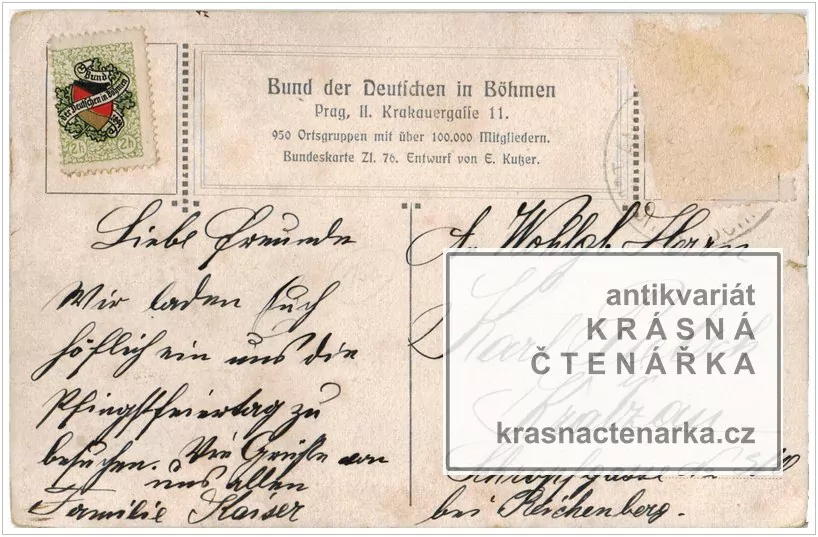 Bund
der Deutschen in Böhmen
2h 2h
Bund der Deutschen in Böhmen
Prag, II. Krakauergasse 11.
950 Ortsgruppen mit über 100.000 Mitgliedern.
Bundeskarte Zl. 76. Entwurf von E. Kutzer.
Liebe Freunde
Wir laden Euch
höflich ein uns die
Pfingstfeiertag zu
besuchen. Vie Grüße von
uns allen
Familie Kaiser
Wohlgb. Herrn
Karl
Kratzau
bei Reichenberg.
antikvariát
KRÁSNÁ
ČTENÁŘKA
krasnactenarka.cz